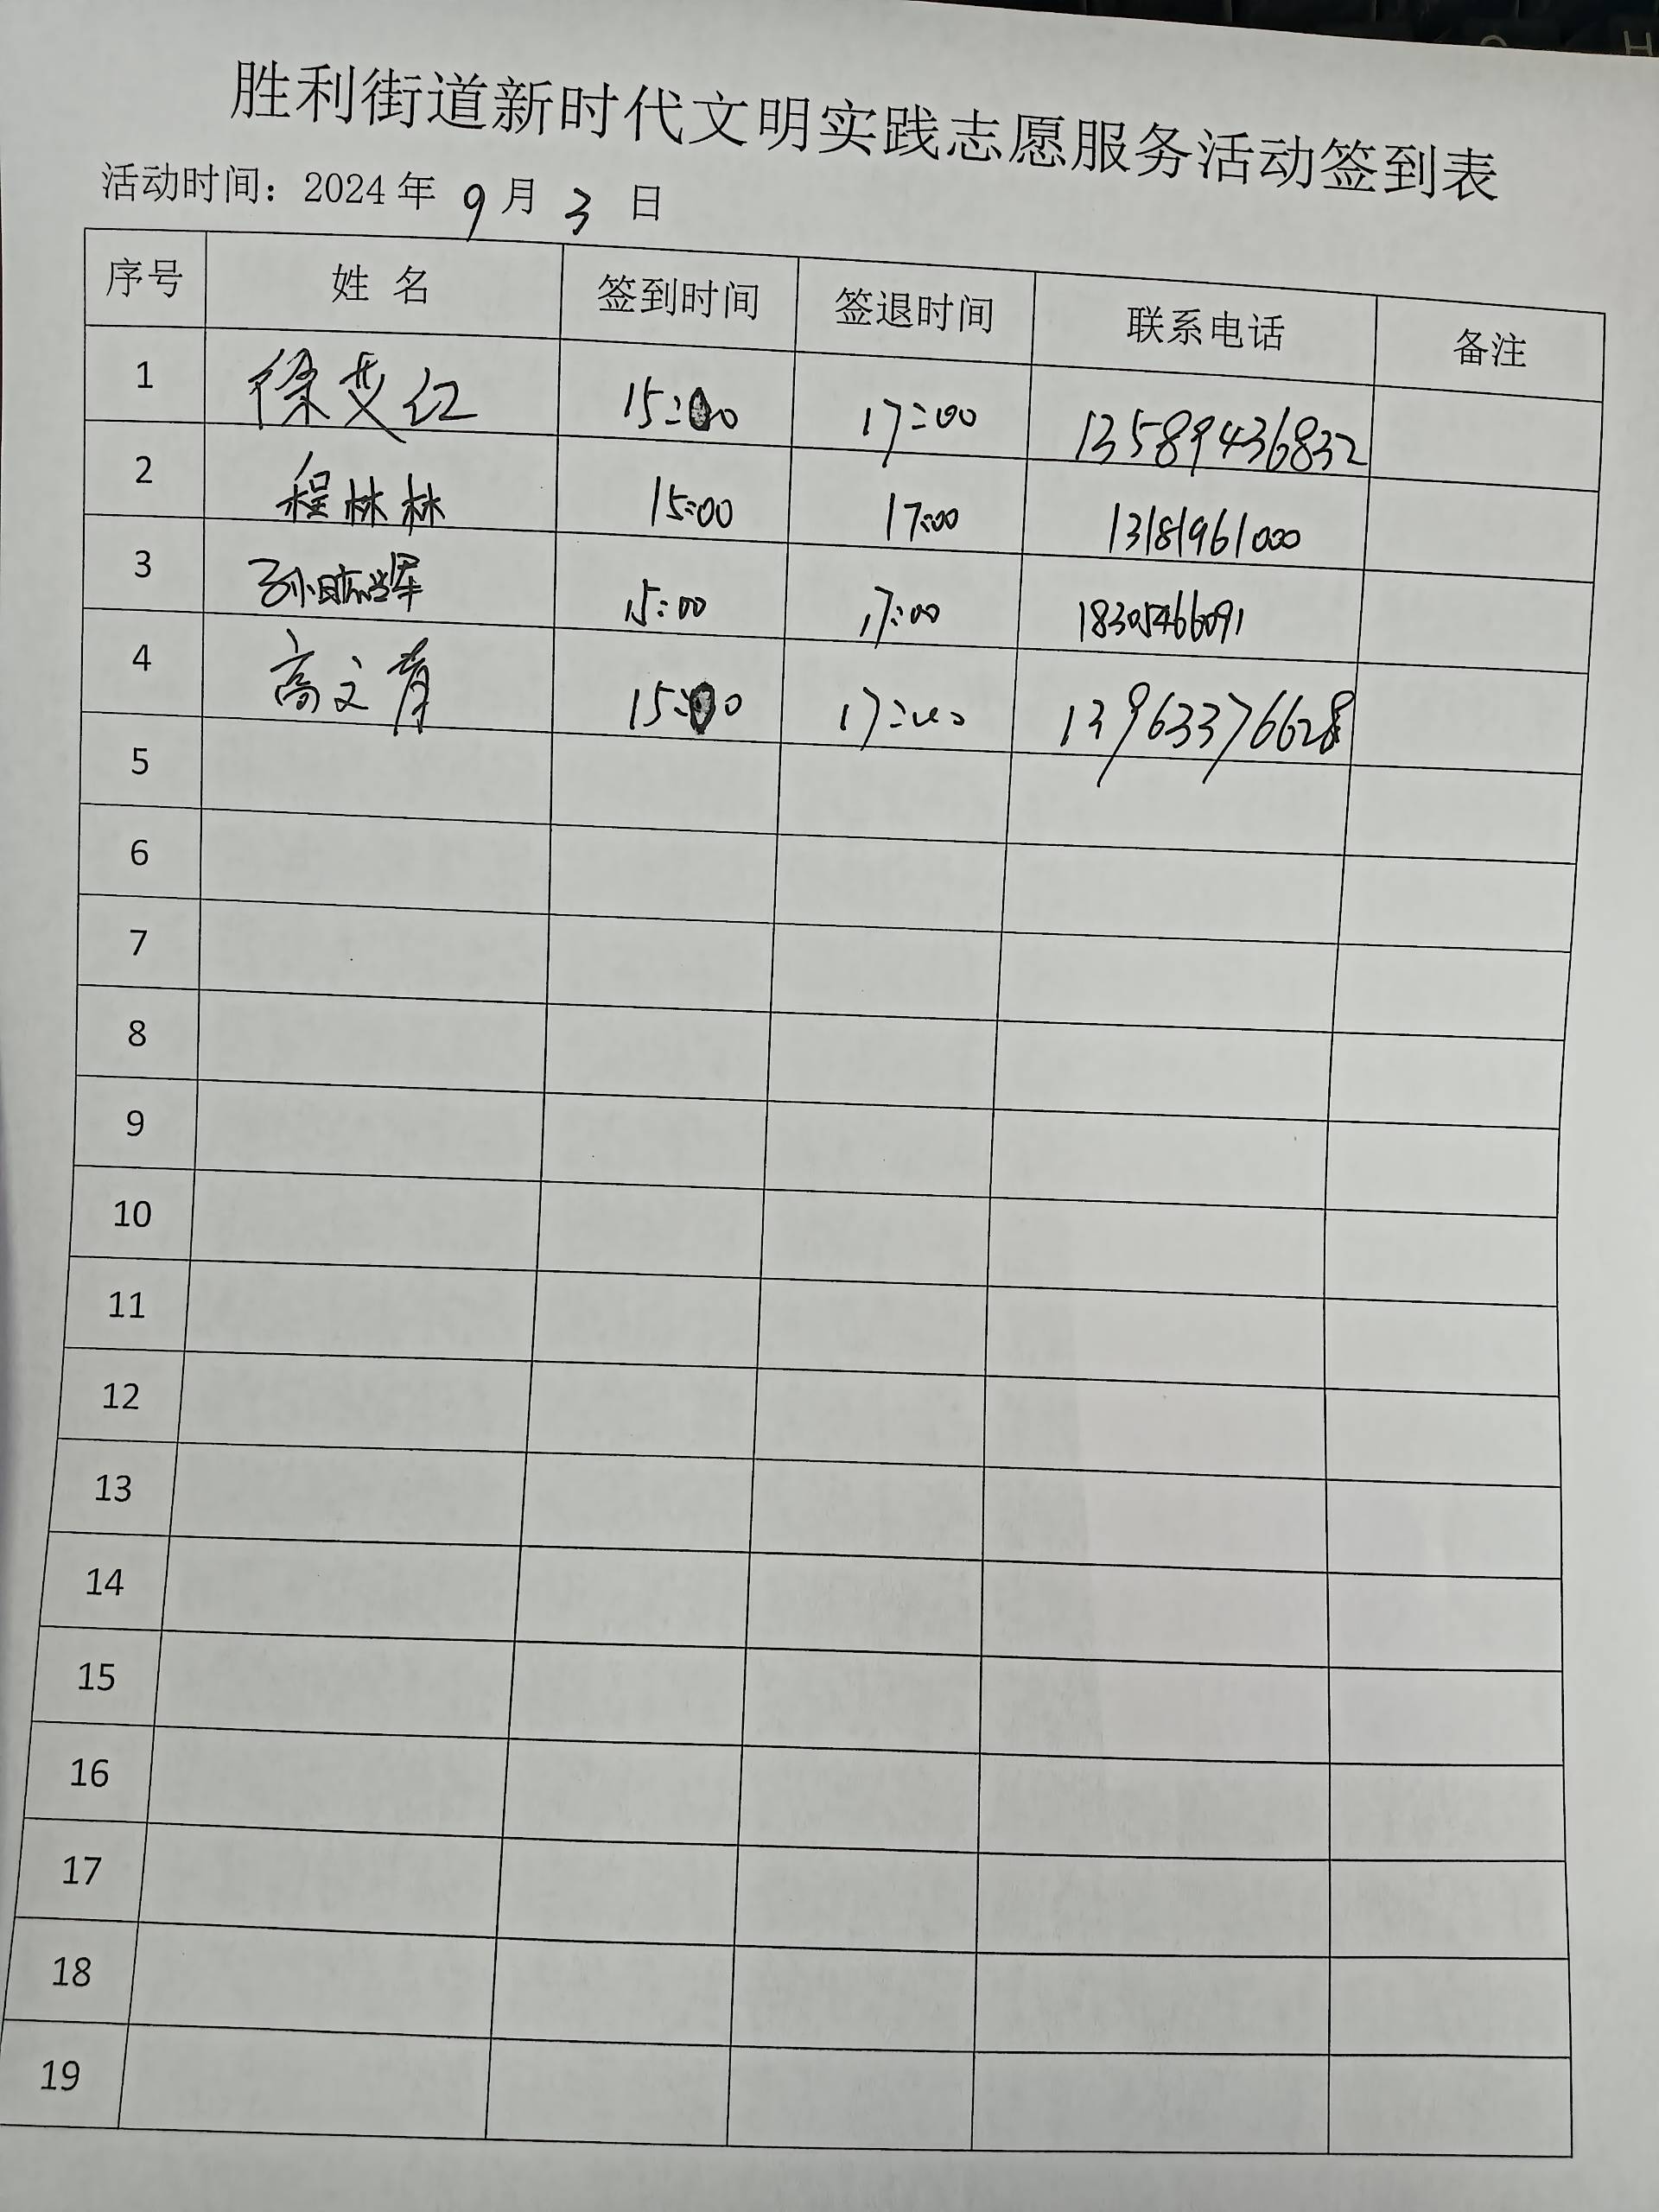 胜利街道新时代文明实践志愿服务活动签到表
活动时间：2024 年 9 月 3 日
序号 姓 名 签到时间 签退时间 联系电话 备注
1 徐艾红 15:00 17:00 13589436832
2 程林林 15:00 17:00 13181961000
3 孙 15:00 17:00 18305466091
4 高文育 15:00 17:00 13963376628
5
6
7
8
9
10
11
12
13
14
15
16
17
18
19